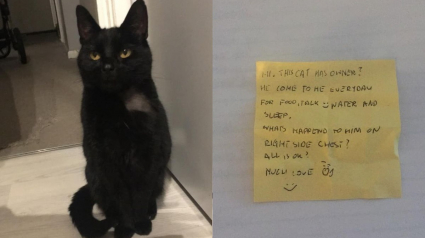 HI, THIS CAT HAS OWNER?
HE COME TO ME EVERYDAY
FOR FOOD, TALK WATER AND
SLEEP.
WHATS HAPPEND TO HIM ON
RIGHT SIDE CHEST?
ALL IS OK?
MUCH LOVE